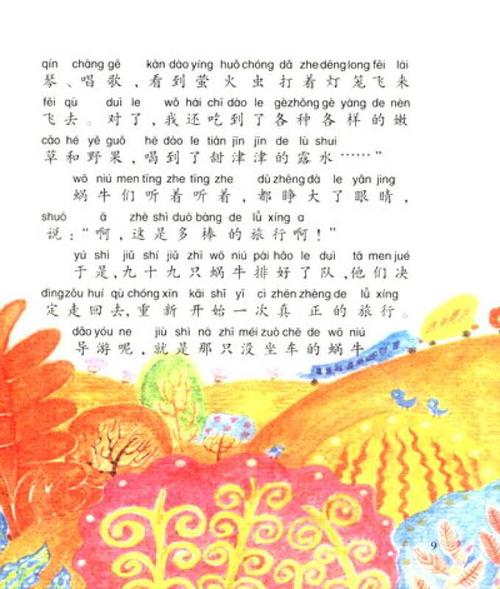 qín chàng gē kàn dào yíng huǒ chóng dǎ zhe dēng lóng fēi lái
琴、唱歌,看到萤火虫打着灯笼飞来
fēi qù duì le wǒ hái chī dào le gè zhǒng gè yàng de nèn
飞去。对了,我还吃到了各种各样的嫩
cǎo hé yě guǒ hē dào le tián jīn jīn de lù shuǐ
草和野果,喝到了甜津津的露水……”
wō niú men tīng zhe tīng zhe dū zhēng dà le yǎn jing
蜗牛们听着听着,都睁大了眼睛,
shuō ā zhè shì duō bàng de lǚ xíng a
说:“啊,这是多棒的旅行啊!”
yú shì jiǔ shí jiǔ zhī wō niú pái hǎo le duì tā men jué
于是,九十九只蜗牛排好了队,他们决
dìng zǒu huí qù chóng xīn kāi shǐ yī cì zhēn zhèng de lǚ xíng
定走回去,重新开始一次真正的旅行。
dǎo yóu ne jiù shì nà zhī méi zuò chē de wō niú
导游呢,就是那只没坐车的蜗牛
9